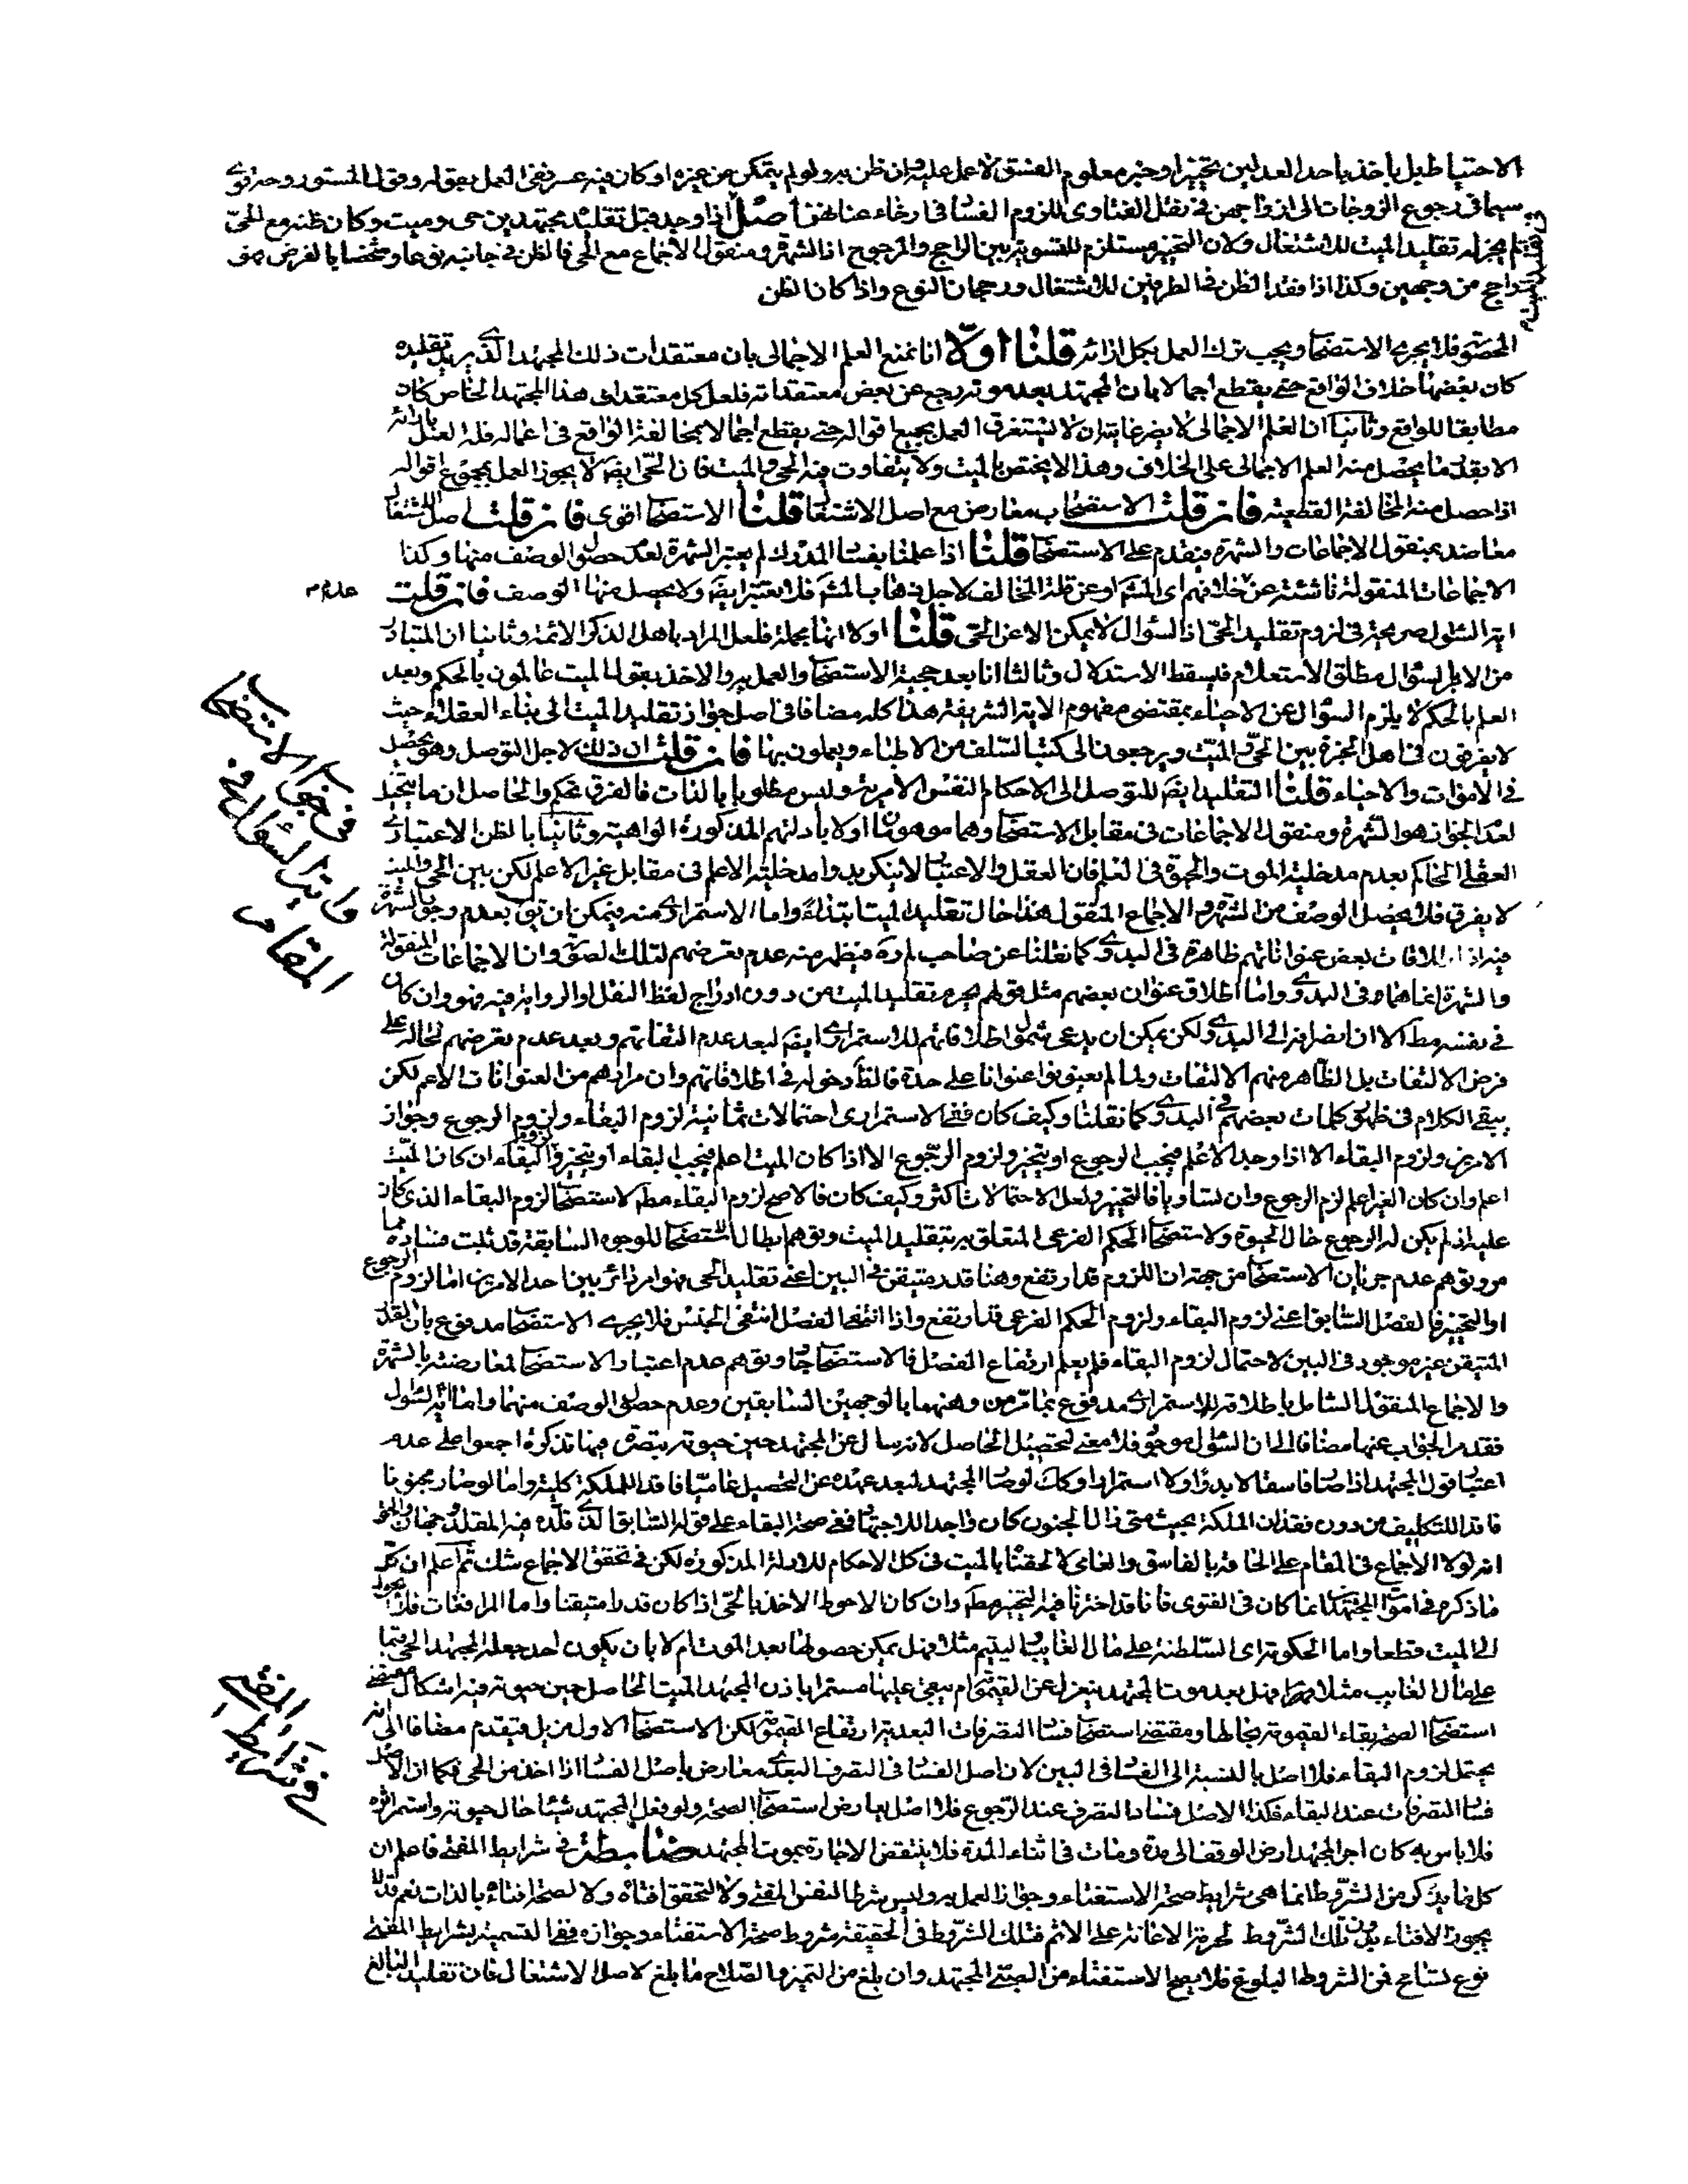 الاحتياط بل يأخذ باحد العدلين تخييرا وخبر معلوم الفسق لا عمل عليه وان ظن به ولو لم يتمكن من غيره او كان فيه عسر ففى العمل بقوله وقول المستور وجه قوى
سيما فى رجوع الزوجات الى ازواجهن فى نقل الفتاوى للزوم الفساد فى ارخاء عنانهن أصل اذا وجد قبل تقليد مجتهدين حى وميت وكان ظنه مع الحى
لم يجز له تقليد الميت للاشتغال ولان التخيير مستلزم للتسوية بين الراجح والمرجوح اذ الشهرة ومنقول الاجماع مع الحى فالظن فى جانبه نوعا وشخصا بالفرض فهو
راجح من وجهين وكذا اذا فقد الظن فى الطرفين للاشتغال ورجحان النوع واذا كان الظن
فلا يجرى الاستصحاب ويجب ترك العمل بكل اذ اثر قلنا اولا انا نمنع العلم الاجمالى بان معتقدات ذلك المجتهد الذى يريد تقليده
كان بعضها خلاف الواقع حتى يقطع اجمالا بان المجتهد بعد موته رجع عن بعض معتقداته فلعل كل معتقد لهذا المجتهد الخاص كان
مطابقا للواقع وثانيا ان العلم الاجمالى لا يضر غايته ان لا يستغرق العمل بجميع اقواله حتى يقطع اجمالا بمخالفة الواقع فى اعماله فله العمل
الا بقدر ما يحصل منه العلم الاجمالى على الخلاف وهذا لا يختص بالميت ولا يتفاوت فيه الحى والميت فان الحى ايضا لا يجوز العمل بمجموع اقواله
اذا حصل منه المخالفة القطعية فان قلت الاستصحاب معارض مع اصل الاشتغال قلنا الاستصحاب اقوى فان قلت اصل الاشتغال
معاضد بمنقول الاجماعات والشهرة فيقدم على الاستصحاب قلنا اذا علمنا بفساد المدرك لم يعتبر الشهرة لعدم حصول الوصف منها وكذا
الاجماعات المنقولة ناشئة عن خلافهم اى المشهور او عن قلة المخالف لاجل ذهاب المشهور فلا يعتبر ايضا ولا يحصل منها الوصف فان قلت
اية السئول صريحة فى لزوم تقليد الحى اذ السئوال لا يمكن الا عن الحى قلنا اولا انها مجملة فلعل المراد باهل الذكر الائمة وثانيا ان المتبادر
من الامر بالسئوال مطلق الاستعلام فيسقط الاستدلال وثالثا انا بعد حجية الاستصحاب والعمل به والاخذ بقول الميت عالمون بالحكم وبعد
العلم بالحكم لا يلزم السؤال عن الاحياء بمقتضى مفهوم الاية الشريفة هذا كله مضافا فى اصل جواز تقليد الميت الى بناء العقلاء حيث
لا يفرقون فى اهل الخبرة بين الحى والميت ويرجعون الى كتب السلف من الاطباء ويعملون بها فان قلت ان ذلك لاجل التوصل وهو يحصل
فى الاموات والاحياء قلنا التقليد ايضا للتوصل الى الاحكام النفس الامرية وليس مطلوبا بالذات فالفرق تحكم والحاصل ان ما يتخيل
لعدم الجواز هو الشهرة ومنقول الاجماعات فى مقابل الاستصحاب وهما موهونان اولا بأدلتهم المذكورة الواهية وثانيا بالظن الاعتبارى
العقلى الحاكم بعدم مدخلية الموت والحيوة فى العلم فان العقل والاعتبار لا ينكر بدوا مدخلية الاعلم فى مقابل غير الاعلم لكن بين الحى والميت
لا يفرق فلا يحصل الوصف من الشهرة والاجماع المنقول هذا حال تقليد الميت ابتداء واما الاستمرارى منه فيمكن ان يقال بعدم وجود الشهرة
فيه اذ اطلاقات بعض عنواناتهم ظاهرة فى البدوى كما نقلنا عن صاحب لم ره فيظهر منه عدم تعرضهم لتلك الصورة وان الاجماعات المنقولة
والشهرة انما هما فى البدوى واما اطلاق عنوان بعضهم مثل قولهم يحرم تقليد الميت من دون ادراج لفظ النقل او الرواية فيه فهو وان كان
فى نفسه مط الا ان انصرافه الى البدوى ولكن يمكن ان يدعى شمول اطلاقاتهم للاستمرارى ايضا لبعد عدم التفاتهم وبعد عدم تعرضهم لحاله على
فرض الالتفات بل الظاهر منهم الالتفات ولما لم يعنونوا عنوانا على حدة فالظاهر دخوله فى اطلاقاتهم وان مرادهم من العنوانات الاعم لكن
يبقى الكلام فى ظهور كلمات بعضهم فى البدوى كما نقلنا وكيف كان ففى الاستمرارى احتمالات ثمانية لزوم البقاء ولزوم الرجوع وجواز
الامرين ولزوم البقاء الا اذا وجد الاعلم فيجب الرجوع او يتخير ولزوم الرجوع الا اذا كان الميت اعلم فيجب البقاء او يتخير ولزوم البقاء ان كان الميت
اعلم وان كان الغير اعلم لزم الرجوع وان تساويا فالتخيير ولعل الاحتمالات اكثر وكيف كان فالاصح لزوم البقاء مط لاستصحاب لزوم البقاء الذى كان
عليه اذ لم يكن له الرجوع حال الحيوة ولاستصحاب الحكم الفرعى المتعلق به بتقليد الميت وتوهم ابطال الاستصحاب للوجوه السابقة قد ثبت فساده مما
مر وتوهم عدم جريان الاستصحاب من جهة ان اللزوم قد ارتفع وهنا قدر متيقن فى البين اعنى تقليد الحى فهو امر دائر بين احد الامرين اما لزوم الرجوع
او التخيير فالفصل السابق اعنى لزوم البقاء ولزوم الحكم الفرعى قد ارتفع واذا انتفى الفصل انتفى الجنس فلا يجرى الاستصحاب مدفوع بان القدر
المتيقن غير موجود فى البين لاحتمال لزوم البقاء فلم يعلم ارتفاع الفصل فالاستصحاب جار وتوهم عدم اعتبار الاستصحاب لمعارضته بالشهرة
والاجماع المنقول الشامل باطلاقه للاستمرارى مدفوع بما مر من وهنهما بالوجهين السابقين وعدم حصول الوصف منهما واما اية السئول
فقد مر الجواب عنها مضافا الى ان السئول موجود فلا معنى لتحصيل الحاصل لانه سال عن المجتهد حين حيوته تبصرة فيها تذكرة اجمعوا على عدم
اعتبار قول المجتهد اذا صار فاسقا لا بدوا ولا استمرارا وكك لو صار المجتهد لبعد عهده عن التحصيل عاميا فاقد الملكة كلية واما لو صار مجنونا
فاقدا للتكليف من دون فقدان الملكة بحيث متى زال الجنون كان واجدا للاجتهاد ففى صحة البقاء على قوله السابق الذى قلده فيه المقلد وجهان والحق
انه لولا الاجماع فى المقام على الحاقه بالفاسق والعامى لالحقناه بالميت فى كل الاحكام للادلة المذكورة لكن فى تحقق الاجماع شك ثم اعلم ان كل
ما ذكر فى اموات المجتهدين انما كان فى الفتوى فانا قد اخترنا فيه التخيير مط وان كان الاحوط الاخذ بالحى اذا كان قدرا متيقنا واما المرافعات فلا يجوز
الى الميت قطعا واما الحكومة اى السلطنة على مال الغايب واليتيم مثلا فهل يمكن حصولها بعد الموت ام لا بان يكون احد جعله المجتهد الحى قيما
على مال الغايب مثلا فهل بعد موت المجتهد ينعزل عن القيمومة ام يبقى عليها مستمرا باذن المجتهد الميت الحاصل حين حيوته فيه اشكال مقتضى
استصحاب الصحة بقاء القيمومة بحالها ومقتضى استصحاب فساد التصرفات البعدية ارتفاع القيمومة لكن الاستصحاب الاول مزيل فيقدم مضافا الى انه
يحتمل لزوم البقاء فلا اصل بالنسبة الى الفساد فى البين لان اصل الفساد فى التصرف البعدى معارض بأصل الفساد اذا اخذ من الحى فكما ان الاصل
فساد التصرفات عند البقاء فكذا الاصل فساد التصرف عند الرجوع فلا اصل يعارض استصحاب الصحة ولو فعل المجتهد شيئا حال حيوته واستمر اثره
فلا باس به كان اجر المجتهد ارض الوقف الى مدة ومات فى اثناء المدة فلا ينتقض الاجارة بموت المجتهد ضابطة فى شرايط المفتى فاعلم ان
كل ما يذكر من الشروط انما هى شرايط صحة الاستفتاء وجواز العمل به وليس شرطا لنفس المفتى ولا لتحقق افتائه ولا لصحة افتائه بالذات نعم قد لا
يجوز الافتاء بدون تلك الشروط لحرمة الاعانة على الاثم فتلك الشروط فى الحقيقة شروط صحة الاستفتاء وجوازه ففى التسمية بشرايط المفتى
نوع تسامح فمن الشروط البلوغ فلا يصح الاستفتاء من الصبى المجتهد وان بلغ من التميز والصلاح ما بلغ لاصل الاشتغال فان تقليد البالغ
فى شرايط المفتى